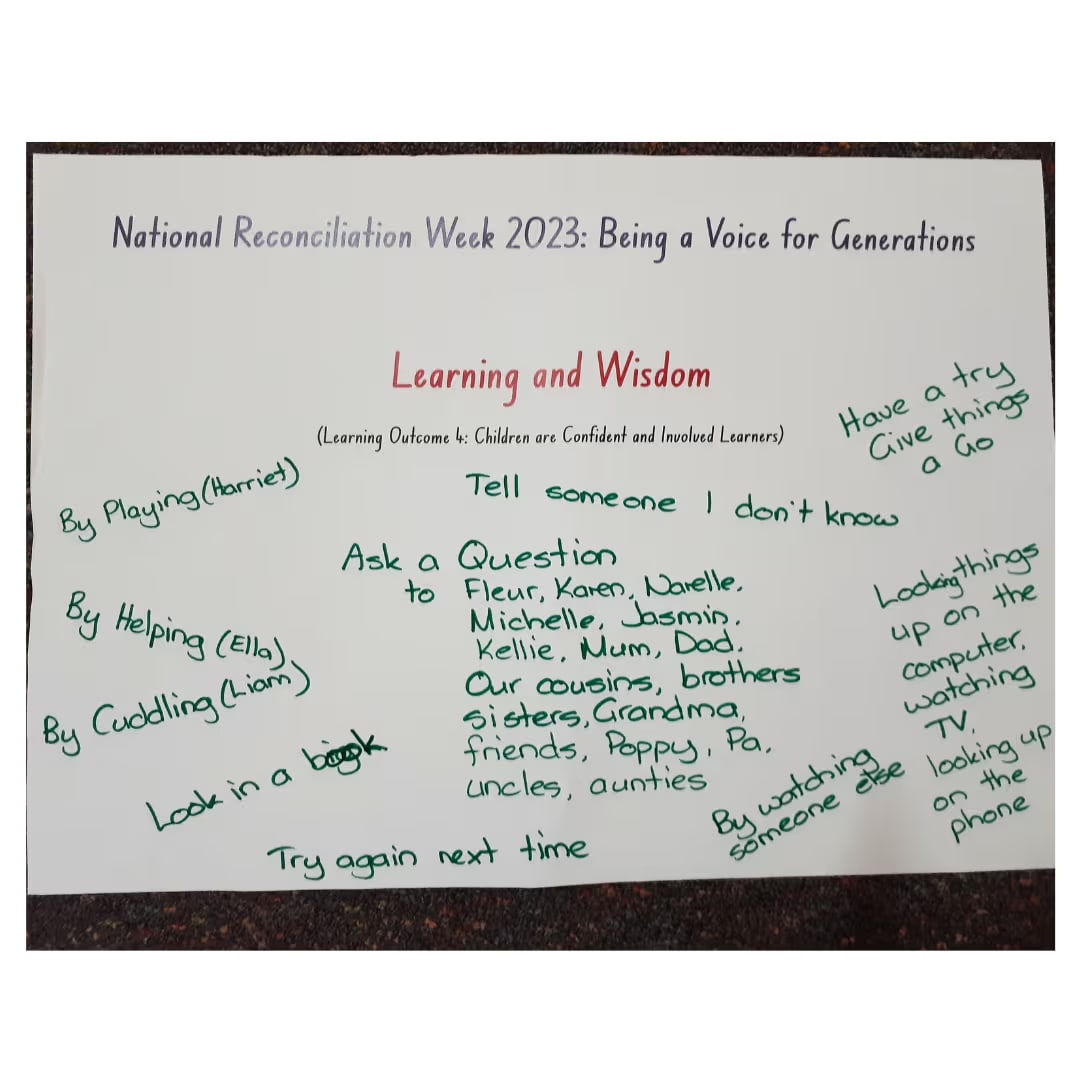 National Reconciliation Week 2023: Being a Voice for Generations
Learning and Wisdom
(Learning Outcome 4: Children are Confident and Involved Learners)
Have a try
Give things
a Go
By Playing (Harriet)
Tell someone I don't know
Ask a Question
to Fleur, Karen, Narelle.
Michelle, Jasmin.
Kellie, Mum, Dad.
Our cousins, brothers
sisters, Grandma,
friends, Poppy, Pa,
uncles, aunties
By Helping (Ella)
By Cuddling (Liam)
Look in a book
Try again next time
By watching
someone else
Looking things
up on the
computer.
watching
TV.
looking up
on the
phone